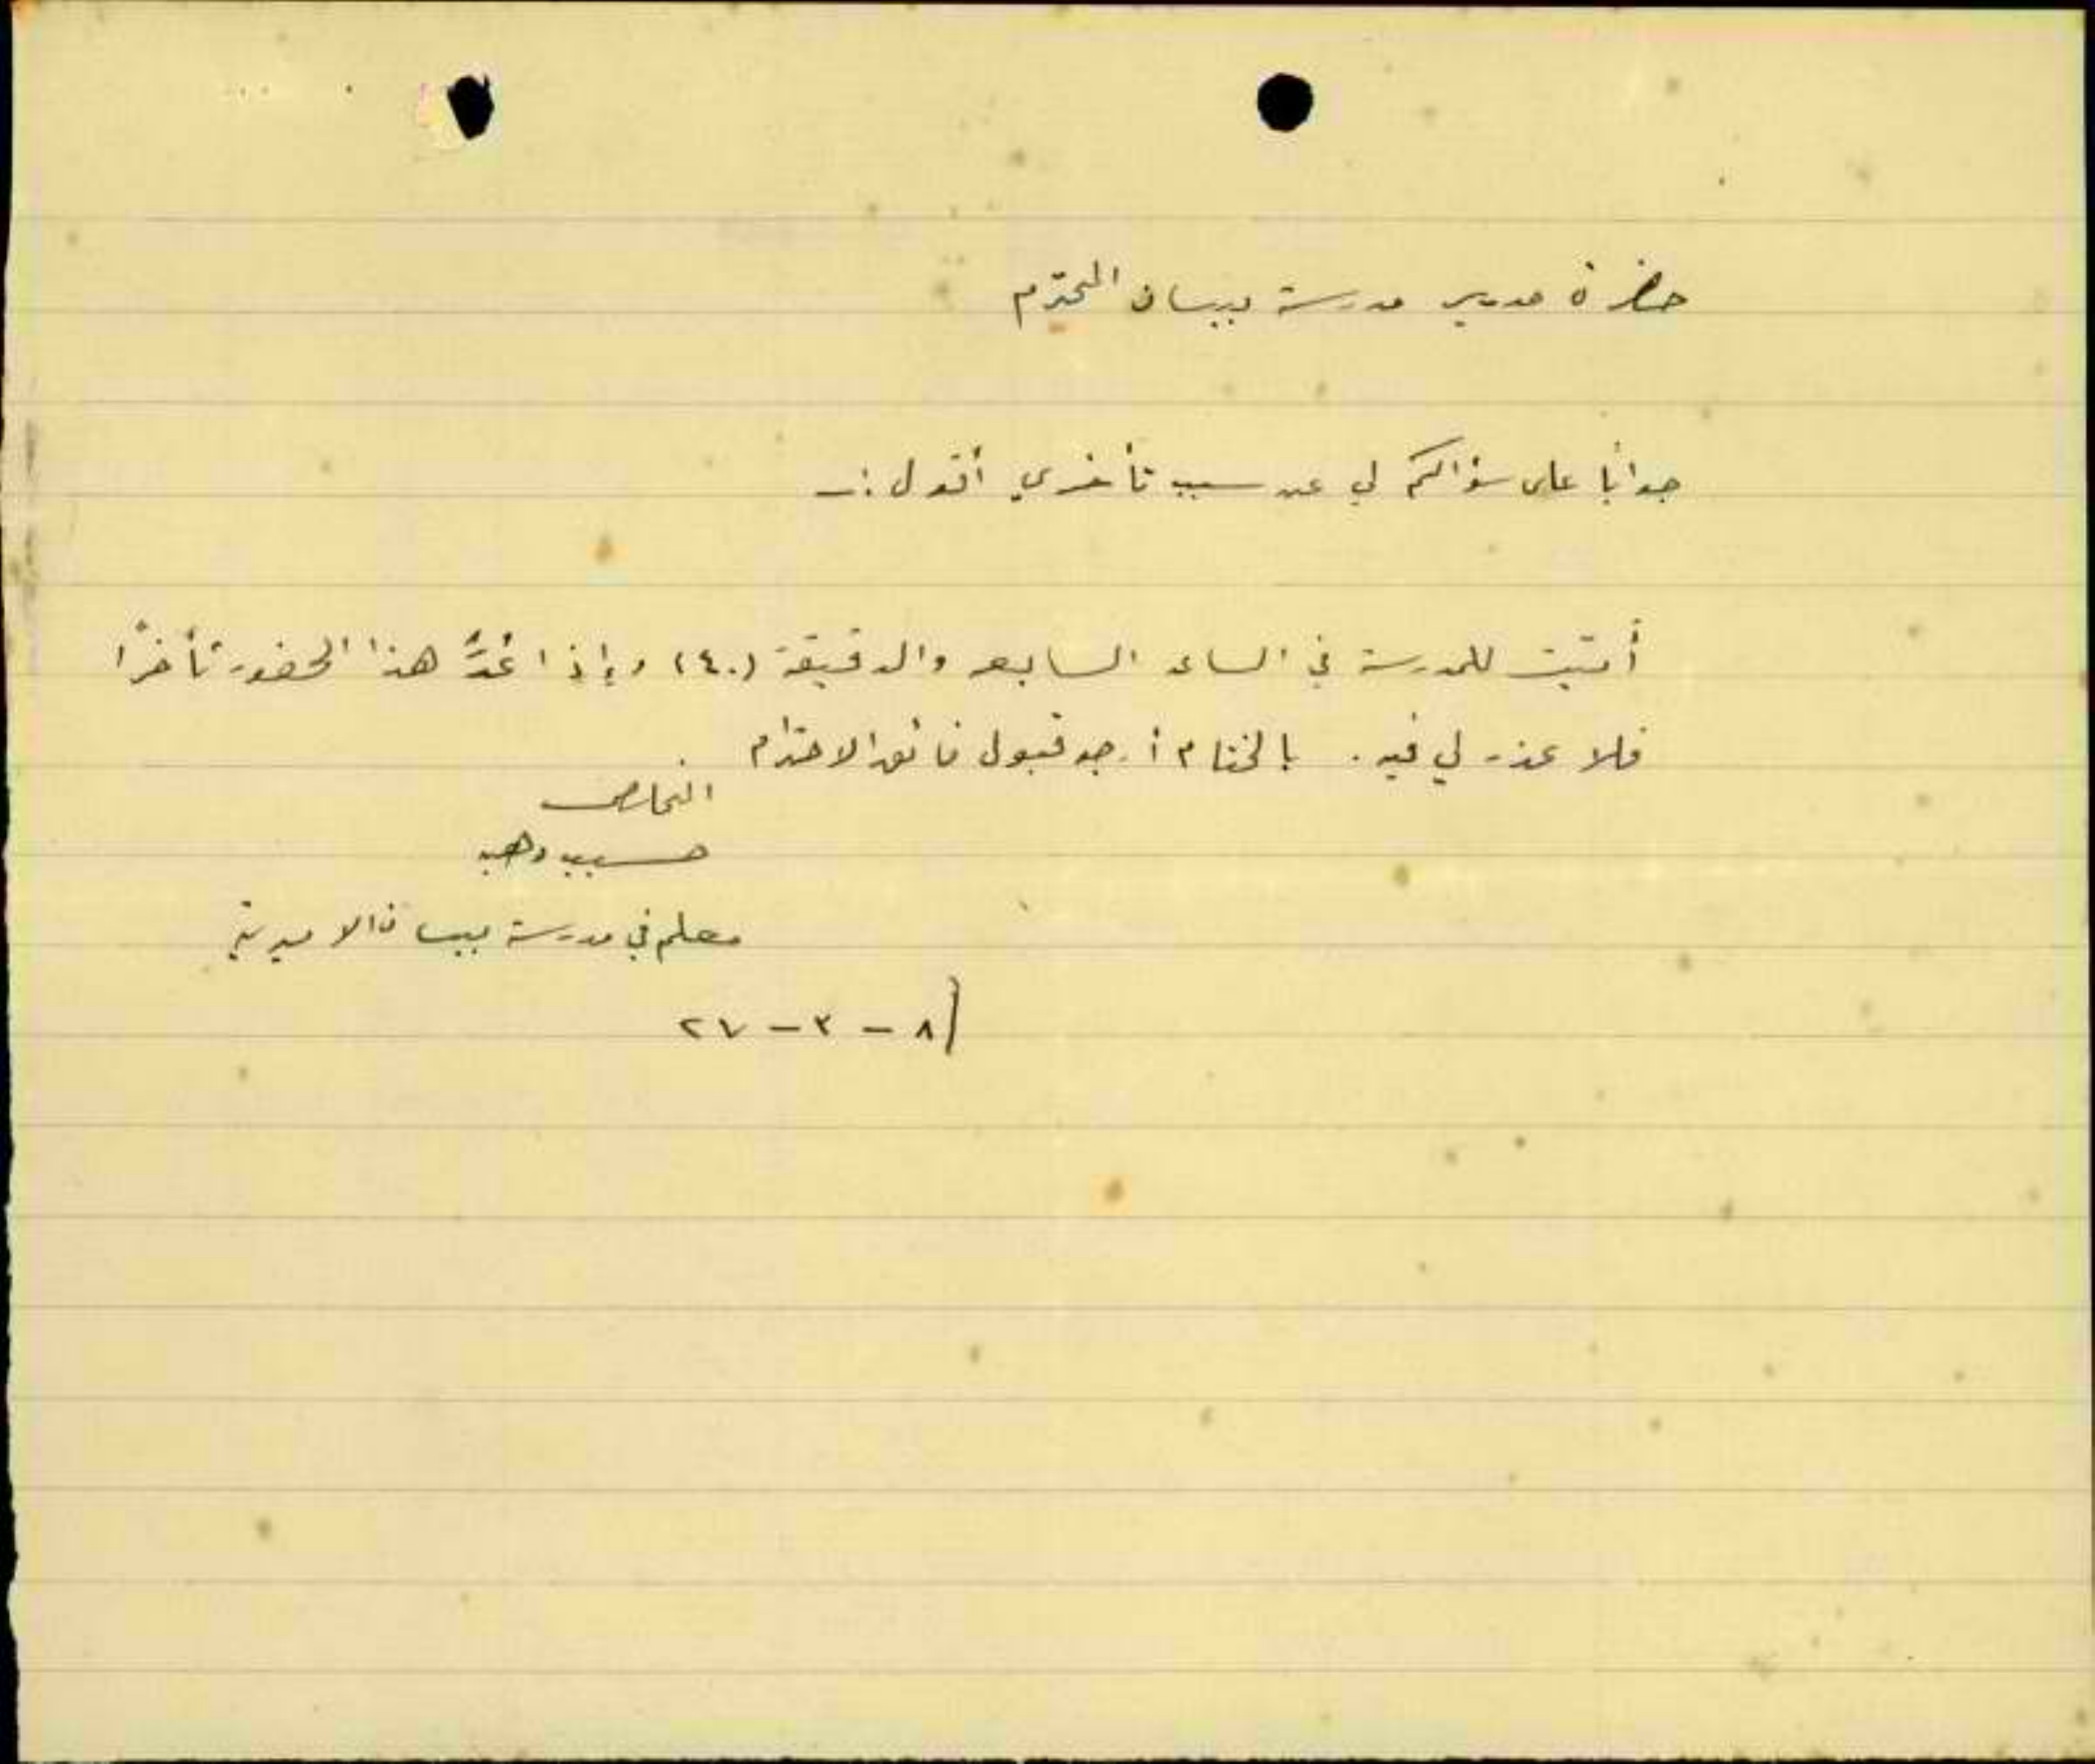 حضرة مدير مدرسة بيسان المحترم
جوابًا على سؤالكم لي عن سبب تأخري أقول :ــ
أتيت للمدرسة في الساعه السابعه والدقيقة (٤٠) وإذا عُدَّ هذا الحضور تأخرًا
فلا عذر لي فيه . بالختام أرجو قبول فائق الاحترام
المخلص
حسيب وهبه
معلم في مدرسة بيسان الاميرية
٨ - ٣ - ٢٧